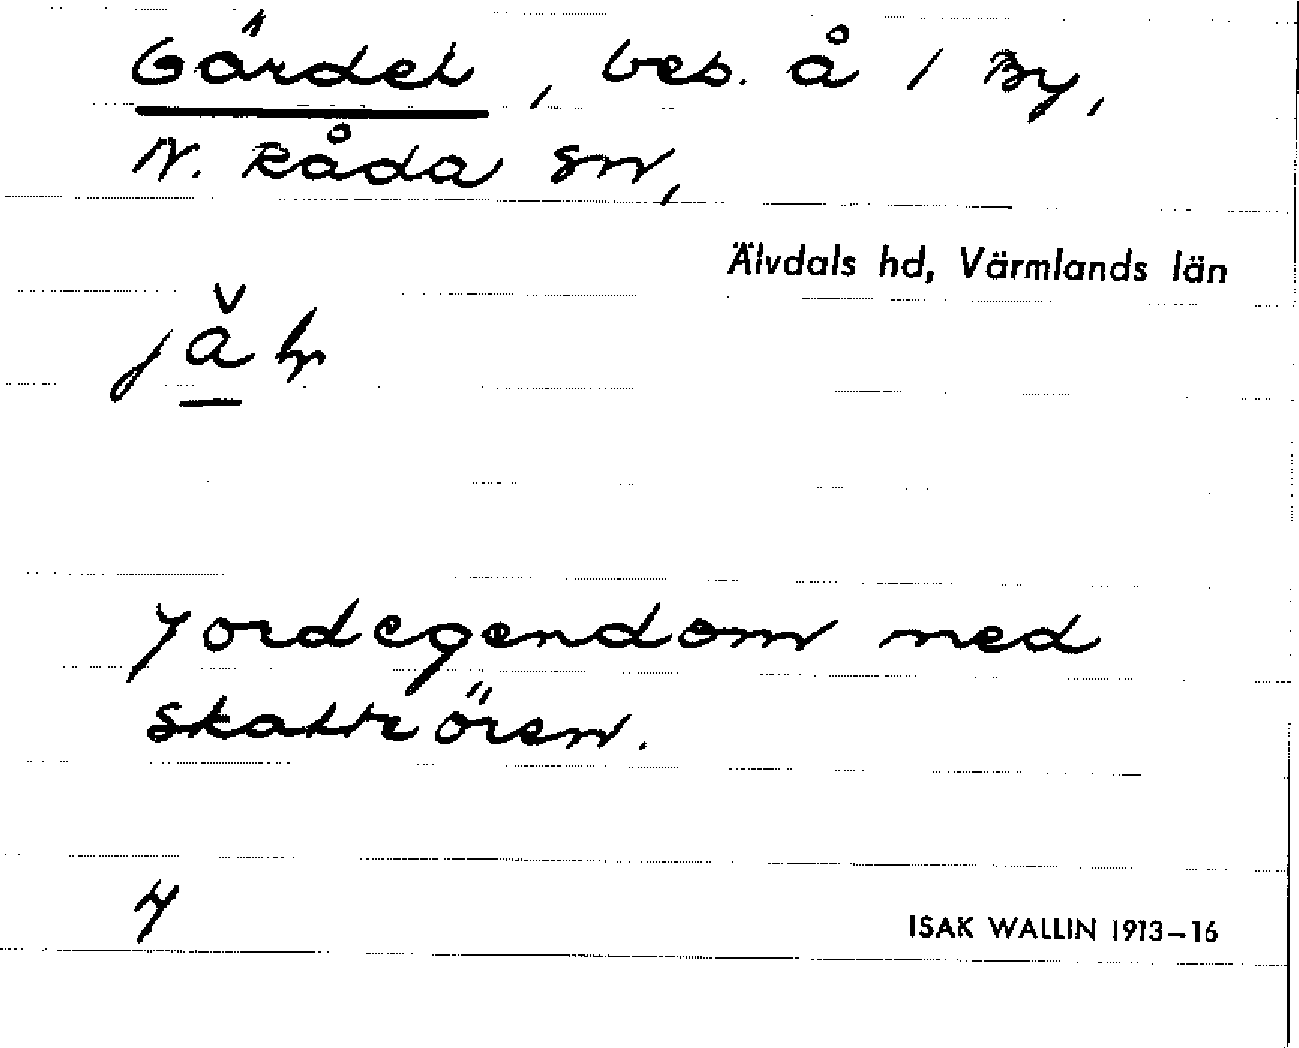 Gärdet, bes. å 1 By,
N. Råda sn,
Älvdals hd, Värmlands län
Jordegendom med
skatteören.
4
ISAK WALLIN 1913–16